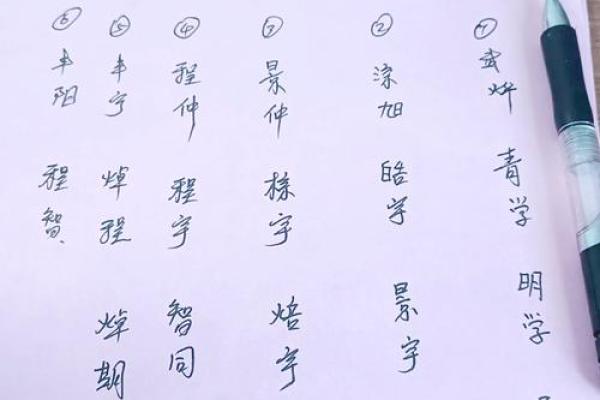 ①
武烨
青学
明学
②
旭
皓宇
景宇
③
景仲
栋宇
焙宇
④
程仲
程宇
智同
⑤
丰宇
焯程
焯期
⑥
丰阳
程智